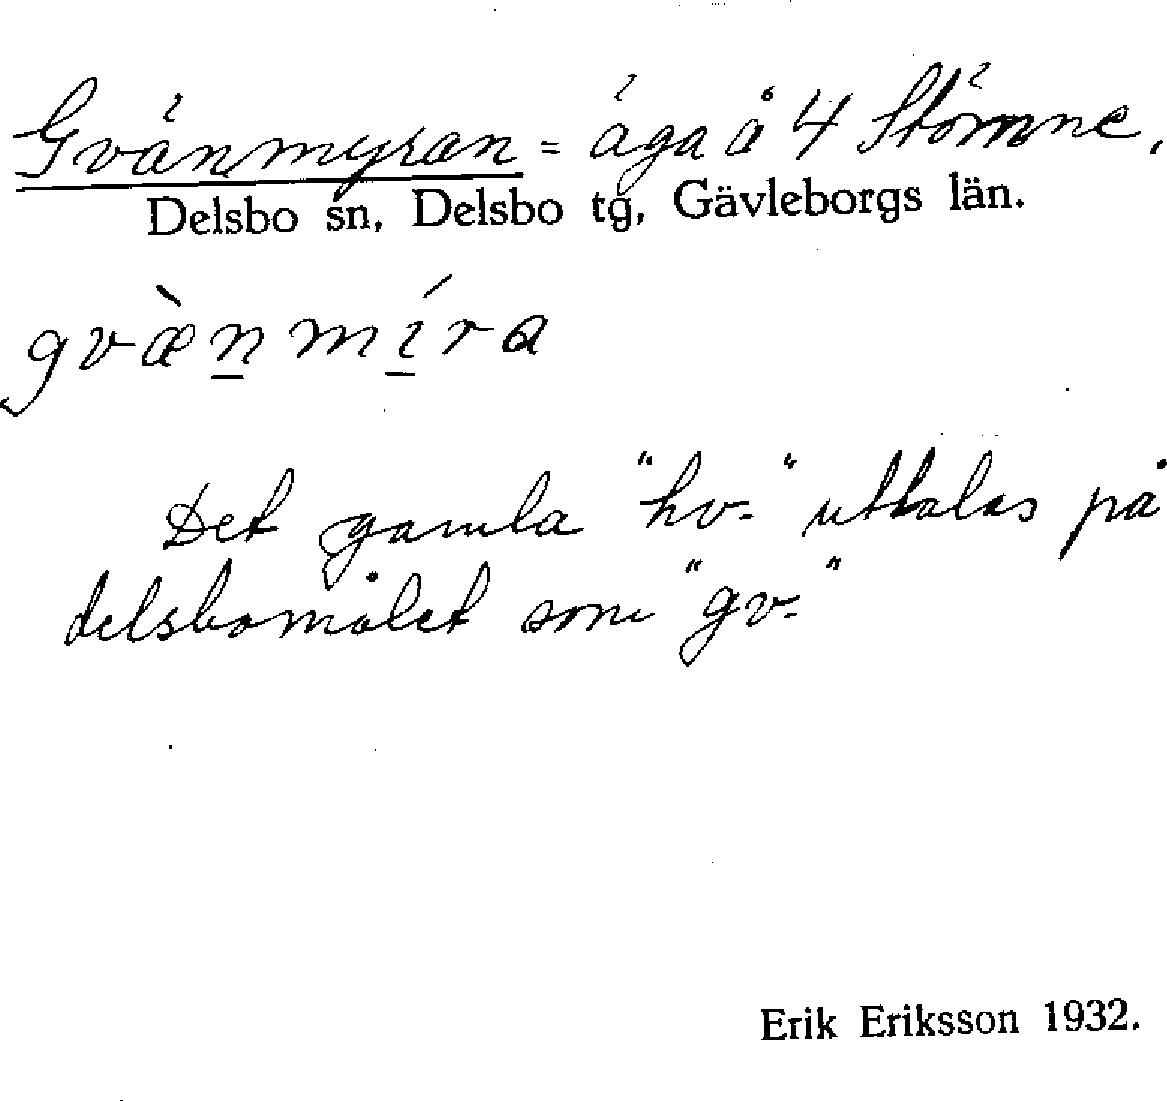 Gvänmyran = äga å 4 Stömne.
Delsbo sn, Delsbo tg, Gävleborgs län.
gvæ̀n̲mí̲ra
Det gamla "hv-" uttalas på
delsbomålet som "gv-"
Erik Eriksson 1932.